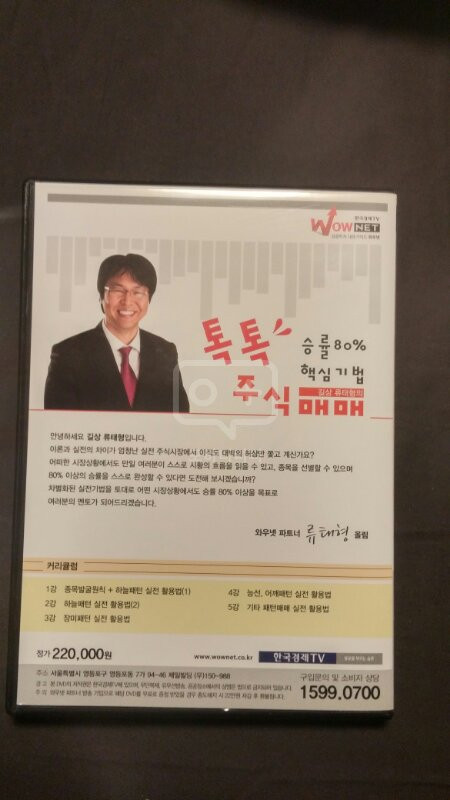 한국경제TV
WOWNET
톡톡
승률80%
핵심기법
길상 류태형의
주식 매매
안녕하세요 길상 류태형입니다.
이론과 실전의 차이가 엄청난 실전 주식시장에서 아직도 대박의 허상만 쫓고 계신가요?
어떠한 시장상황에서도 만일 여러분이 스스로 시황의 흐름을 읽을 수 있고, 종목을 선별할 수 있으며
80% 이상의 승률을 스스로 완성할 수 있다면 도전해 보시겠습니까?
차별화된 실전기법을 토대로 어떤 시장상황에서도 승률 80% 이상을 목표로
여러분의 멘토가 되어드리겠습니다.
와우넷 파트너 류태형 올림
커리큘럼
1강 종목발굴원칙 + 하늘패턴 실전 활용법(1)
2강 하늘패턴 실전 활용법(2)
3강 장미패턴 실전 활용법
4강 능선, 어깨패턴 실전 활용법
5강 기타 패턴매매 실전 활용법
정가 220,000원
www.wownet.co.kr
한국경제TV
주소 서울특별시 영등포구 영등포동 7가 94-46 제일빌딩 (우)150-988
구입문의 및 소비자 상담
1599.0700